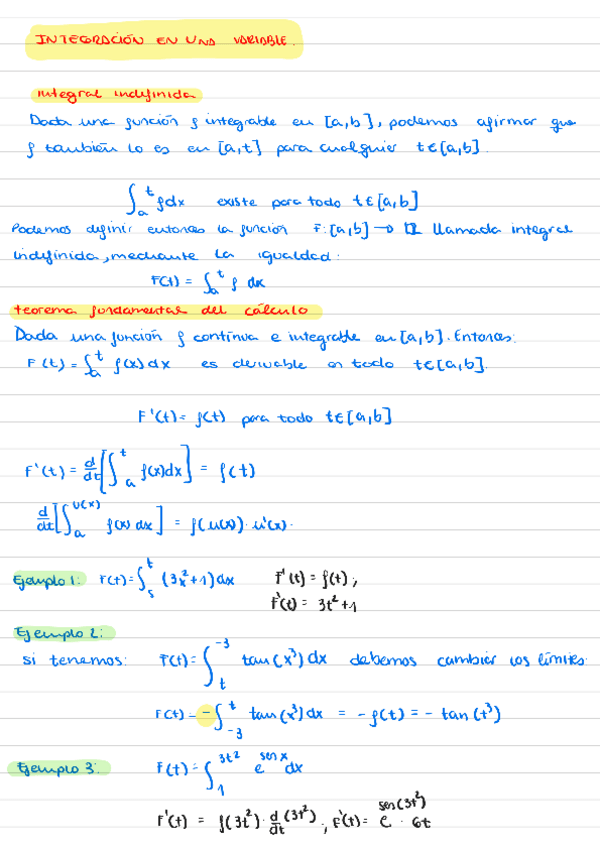 INTEGRACIÓN EN UNA VARIABLE.
integral indefinida
Dada una función f integrable en [a,b], podemos afirmar que
f también lo es en [a,t] para cualquier t∈[a,b].
∫ₐᵗ f dx existe para todo t∈[a,b]
Podemos definir entonces la función F:[a,b] → ℝ llamada integral
indefinida, mediante la igualdad:
F(t) = ∫ₐᵗ f dx
teorema fundamental del cálculo
Dada una función f contínua e integrable en [a,b]. Entonces:
F(t) = ∫ₐᵗ f(x)dx es derivable en todo t∈[a,b].
F'(t) = f(t) para todo t∈[a,b]
F'(t) = d/dt [∫ₐᵗ f(x)dx] = f(t)
d/dt [∫ₐ^u(x) f(x) dx] = f(u(x))·u'(x).
Ejemplo 1: F(t) = ∫₅ᵗ (3x²+1)dx F'(t) = f(t),
F'(t) = 3t²+1
Ejemplo 2:
si tenemos: F(t) = ∫ₜ⁻³ tan(x³)dx debemos cambiar los límites:
F(t) = -∫₋₃ᵗ tan(x³)dx = -f(t) = -tan(t³)
Ejemplo 3: F(t) = ∫₁^3t² e^sen x dx
F'(t) = f(3t²)· d/dt (3t²), F'(t) = e^sen(3t²) · 6t